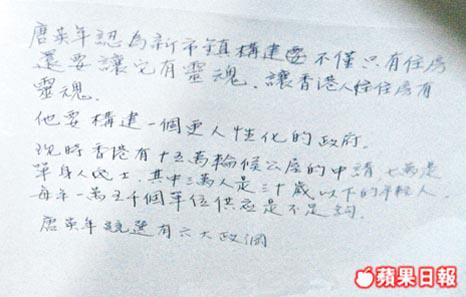 唐英年認為新市鎮構建要不僅只有住房
還要讓它有靈魂. 讓香港人住住房有
靈魂.
他要構建一個更人性化的政府.
現時香港有十五萬輪候公屋的申請 七萬是
單身人士. 其中三萬人是三十歲以下的年輕人.
每年一萬五千個單位供应是不足夠.
唐英年競選有六大政綱
蘋果日報